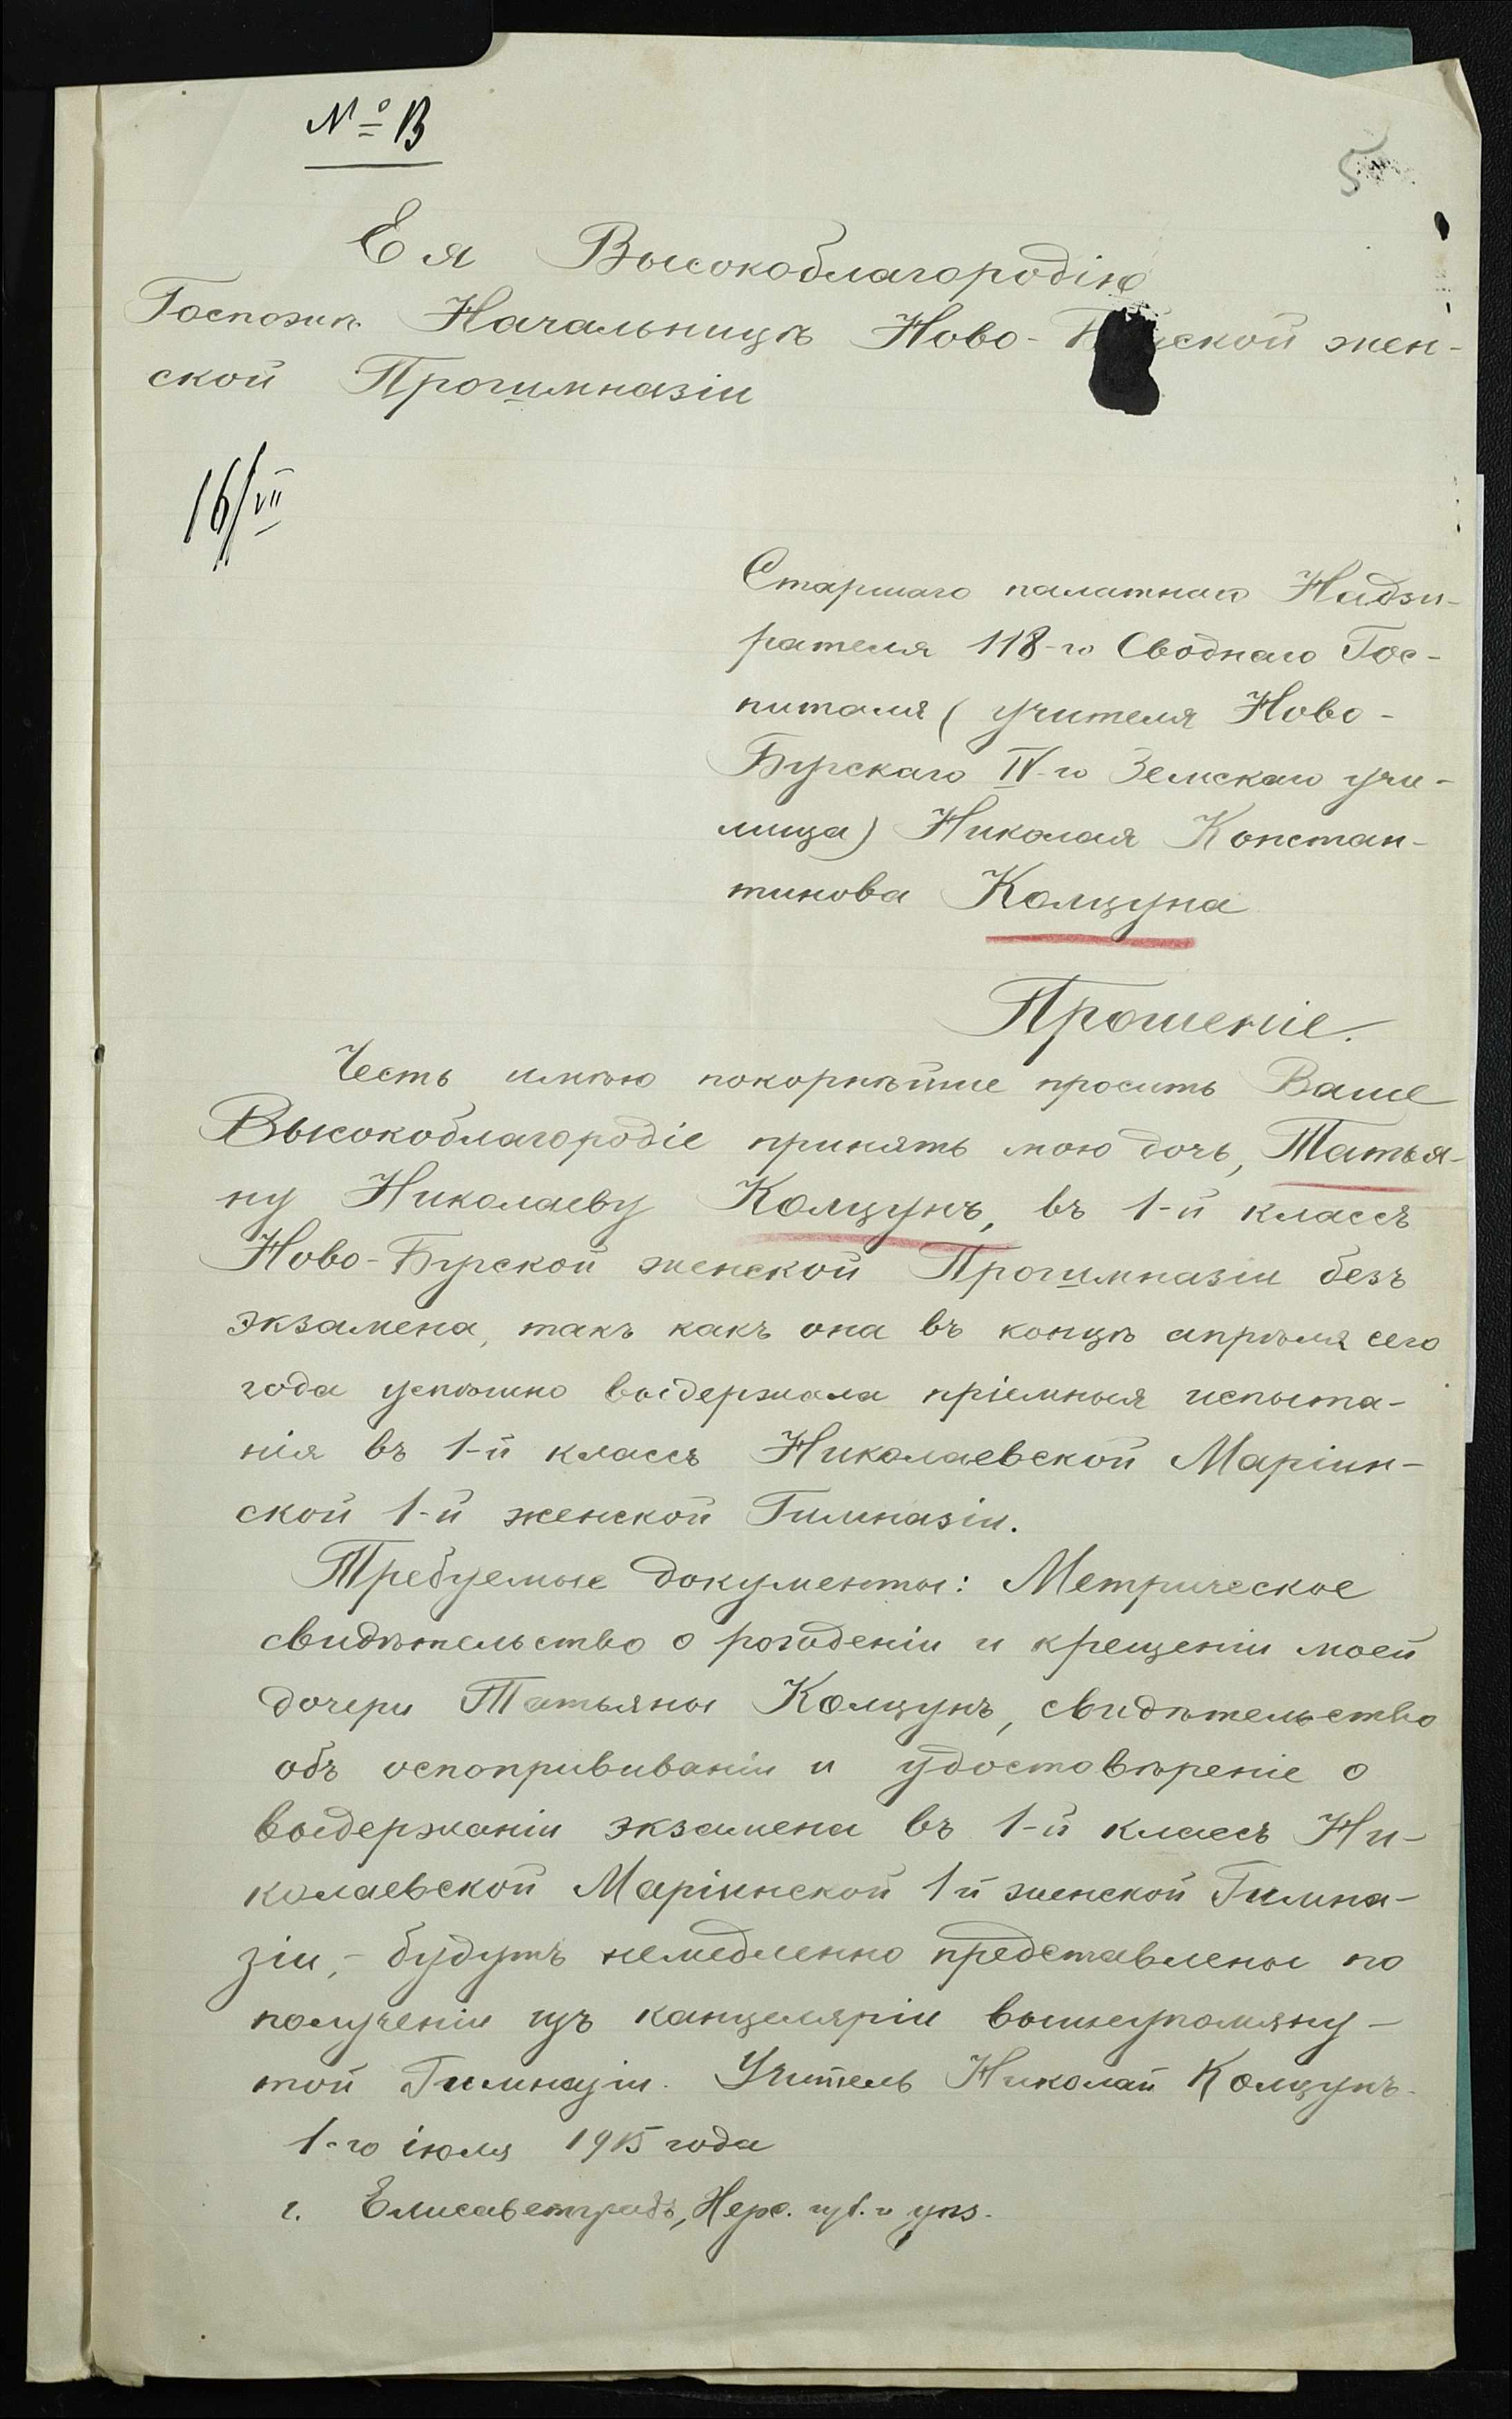 № 13
5
Ея Высокоблагородію
Госпожѣ Начальницѣ Ново- ской жен-
ской Прогимназіи
16/VII
Старшаго палатнаго Надзи-
рателя 118-го Своднаго Гос-
питаля (учителя Ново-
Бугскаго IV-го Земскаго учи-
лища) Николая Констан-
тинова Колцуна
Прошеніе.
Честь имѣю покорнѣйше просить Ваше
Высокоблагородіе принять мою дочь, Татья-
ну Николаеву Колцунъ, въ 1-й классъ
Ново-Бугской женской Прогимназіи безъ
экзамена, такъ какъ она въ концѣ апрѣля сего
года успѣшно выдержала пріемныя испыта-
нія въ 1-й классъ Николаевской Маріин-
ской 1-й женской Гимназіи.
Требуемые документы: Метрическое
свидѣтельство о рожденіи и крещеніи моей
дочери Татьяны Колцунъ, свидѣтельство
объ оспопрививаніи и удостовѣреніе о
выдержаніи экзамена въ 1-й классъ Ни-
колаевской Маріинской 1й женской Гимна-
зіи, - будутъ немедленно представлены по
полученіи изъ канцеляріи вышеупомяну-
той Гимназіи. Учитель Николай Колцунъ.
1-го іюля 1915 года
г. Елисаветградъ, Херс. губ. и уѣз.